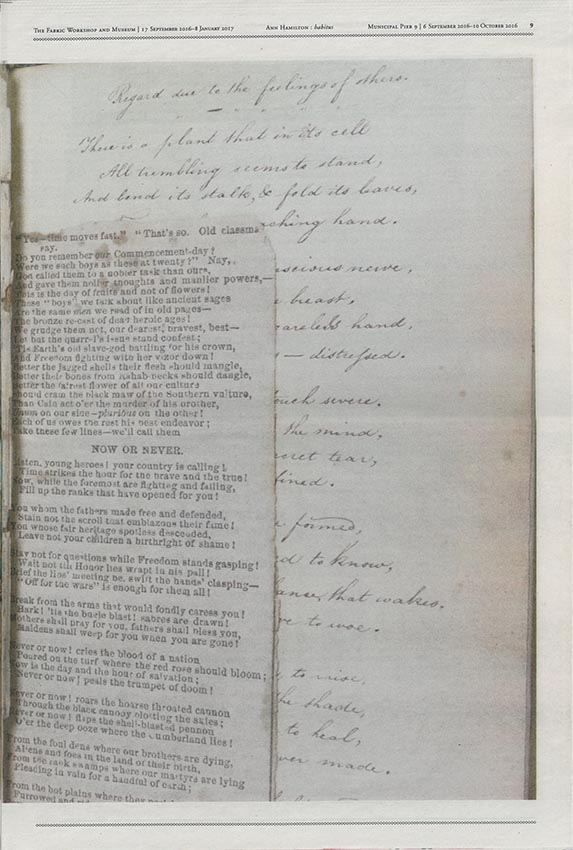 THE FABRIC WORKSHOP AND MUSEUM | 17 SEPTEMBER 2016–8 JANUARY 2017
ANN HAMILTON : habitus
MUNICIPAL PIER 9 | 6 SEPTEMBER 2016–10 OCTOBER 2016
9
Regard due to the feelings of others.
There is a plant that in its cell
All trembling seems to stand,
And bend its stalk, & fold its leaves,
aching hand.
scious nerve,
breast,
careless hand,
— distressed.
ouch severe.
the mind,
cret tear,
fined.
formed,
d to know,
that wakes.
ve to woe.
to raise,
the shade,
to heal,
ver made.
"Yes—time moves fast." "That's so. Old classm
say,
Do you remember our Commencement-day?
Were we such boys as these at twenty?" Nay,
God called them to a nobler task than ours,
And gave them nobler thoughts and manlier powers,—
This is the day of fruits and not of flowers!
These "boys" we talk about like ancient sages
Are the same men we read of in old pages—
The bronze re-cast of dead heroic ages!
We grudge them not, our dearest, bravest, best—
Let but the quarrel's issue stand confest;
'Tis Earth's old slave-god battling for his crown,
And Freedom fighting with her vizor down!
Better the jagged shells their flesh should mangle,
Better their bones from Rahab-necks should dangle,
Better the fairest flower of all our culture
Should cram the black maw of the Southern vulture,
Than Cain act o'er the murder of his brother,
Unum on our side—pluribus on the other!
Each of us owes the rest his best endeavor;
Take these few lines—we'll call them
NOW OR NEVER.
Listen, young heroes! your country is calling!
Time strikes the hour for the brave and the true!
Now, while the foremost are fighting and falling,
Fill up the ranks that have opened for you!
You whom the fathers made free and defended,
Stain not the scroll that emblazons their fame!
You whose fair heritage spotless descended,
Leave not your children a birthright of shame!
Stay not for questions while Freedom stands gasping!
Wait not till Honor lies wrapt in his pall!
Brief the lips' meeting be, swift the hands' clasping—
"Off for the wars" is enough for them all!
Break from the arms that would fondly caress you!
Hark! 'tis the bugle blast! sabres are drawn!
Mothers shall pray for you, fathers shall bless you,
Maidens shall weep for you when you are gone!
Never or now! cries the blood of a nation
Poured on the turf where the red rose should bloom;
Now is the day and the hour of salvation;
Never or now! peals the trumpet of doom!
Never or now! roars the hoarse throated cannon
Through the black canopy blotting the skies;
Never or now! flaps the shell-blasted pennon
O'er the deep ooze where the Cumberland lies!
From the foul dens where our brothers are dying,
Aliens and foes in the land of their birth,
From the rank swamps where our martyrs are lying
Pleading in vain for a handful of earth;
From the hot plains where they
Furrowed and